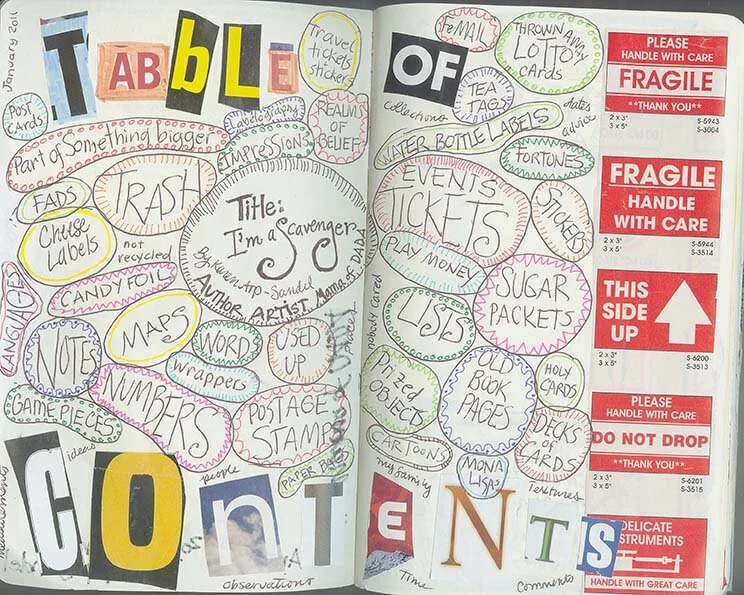 January 2011
TABbLE
Travel
tickets
stickers
POST
CARDS
Part of Something bigger
IMPRESSIONS
REALMS
OF
BELIEF
FADS
TRASH
Cheese
Labels
not
recycled
Title:
I'm a Scavenger
By Karen Arp-Sandel
AUTHOR ARTIST Mama of DADA
CANDY FOIL
LANGUAGES
MAPS
WORDS
USED
UP
NOTES
Wrappers
NUMBERS
GAME PIECES
POSTAGE
STAMPS
PAPER BAGS
ideas
people
measurements
observations
CONT
OF
eMAIL
THROWN AWAY
LOTTO
cards
TEA
TAGS
collections
dates
advice
WATER BOTTLE LABELS
FORTUNES
EVENTS
TICKETS
STICKERS
PLAY MONEY
SUGAR
PACKETS
nobody cared
LISTS
Prized
OBJECTS
OLD
BOOK
PAGES
HOLY
CARDS
DECKS
of
CARDS
CARTOONS
my family
MONA
LISAS
Textures
ENTS
Time
Comments
PLEASE
HANDLE WITH CARE
FRAGILE
**THANK YOU**
2 x 3" S-5943
3 x 5" S-3004
FRAGILE
HANDLE
WITH CARE
2 x 3" S-5944
3 x 5" S-3514
THIS
SIDE
UP
2 x 3" S-6200
3 x 5" S-3513
PLEASE
HANDLE WITH CARE
DO NOT DROP
**THANK YOU**
2 x 3" S-6201
3 x 5" S-3515
DELICATE
INSTRUMENTS
HANDLE WITH GREAT CARE